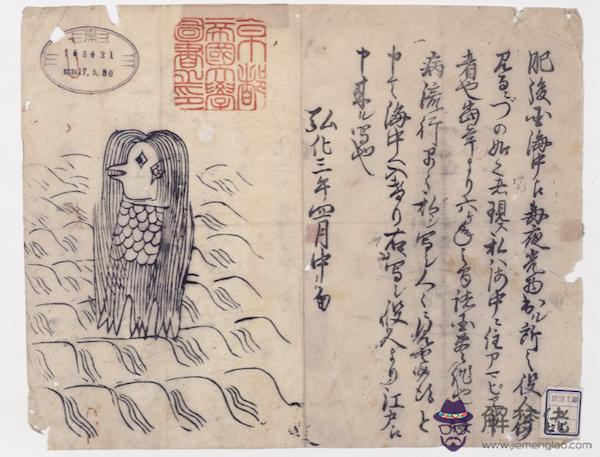 昭和17.5.30
京都
帝國大學
圖書之印
肥後国海中え毎夜光物出ル所之役人行
見るニづの如く者現ス私ハ海中ニ住アマビヱト申
者也当年より六ヶ年之間諸国豊作也併
病流行早々私ヲ写シ人々ニ見せ候得と
申て海中へ入けり右写シ役人より江戸え
申来ル写也
弘化三年四月中旬
解夢佬
www.jiemenglao.com